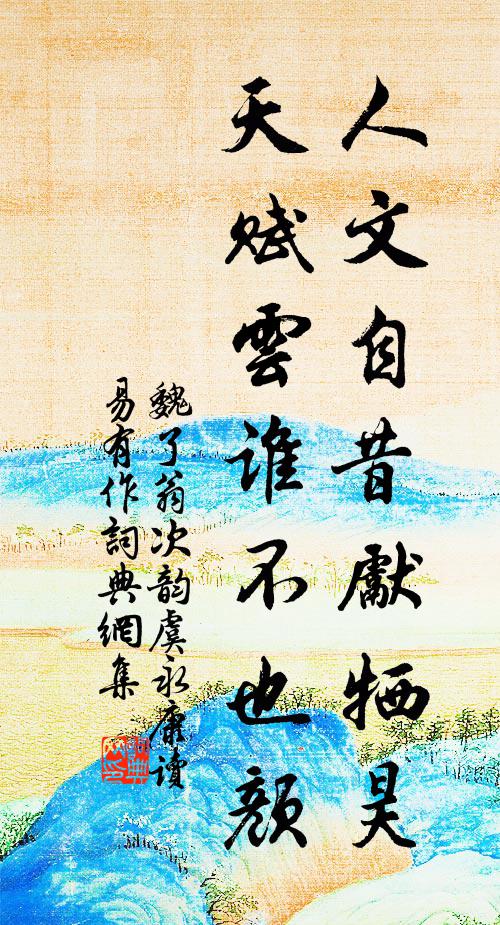 人文自昔獻牺昊
天賦雲誰不也顏
魏了翁次韵虞永康讀
易有作詞典網集